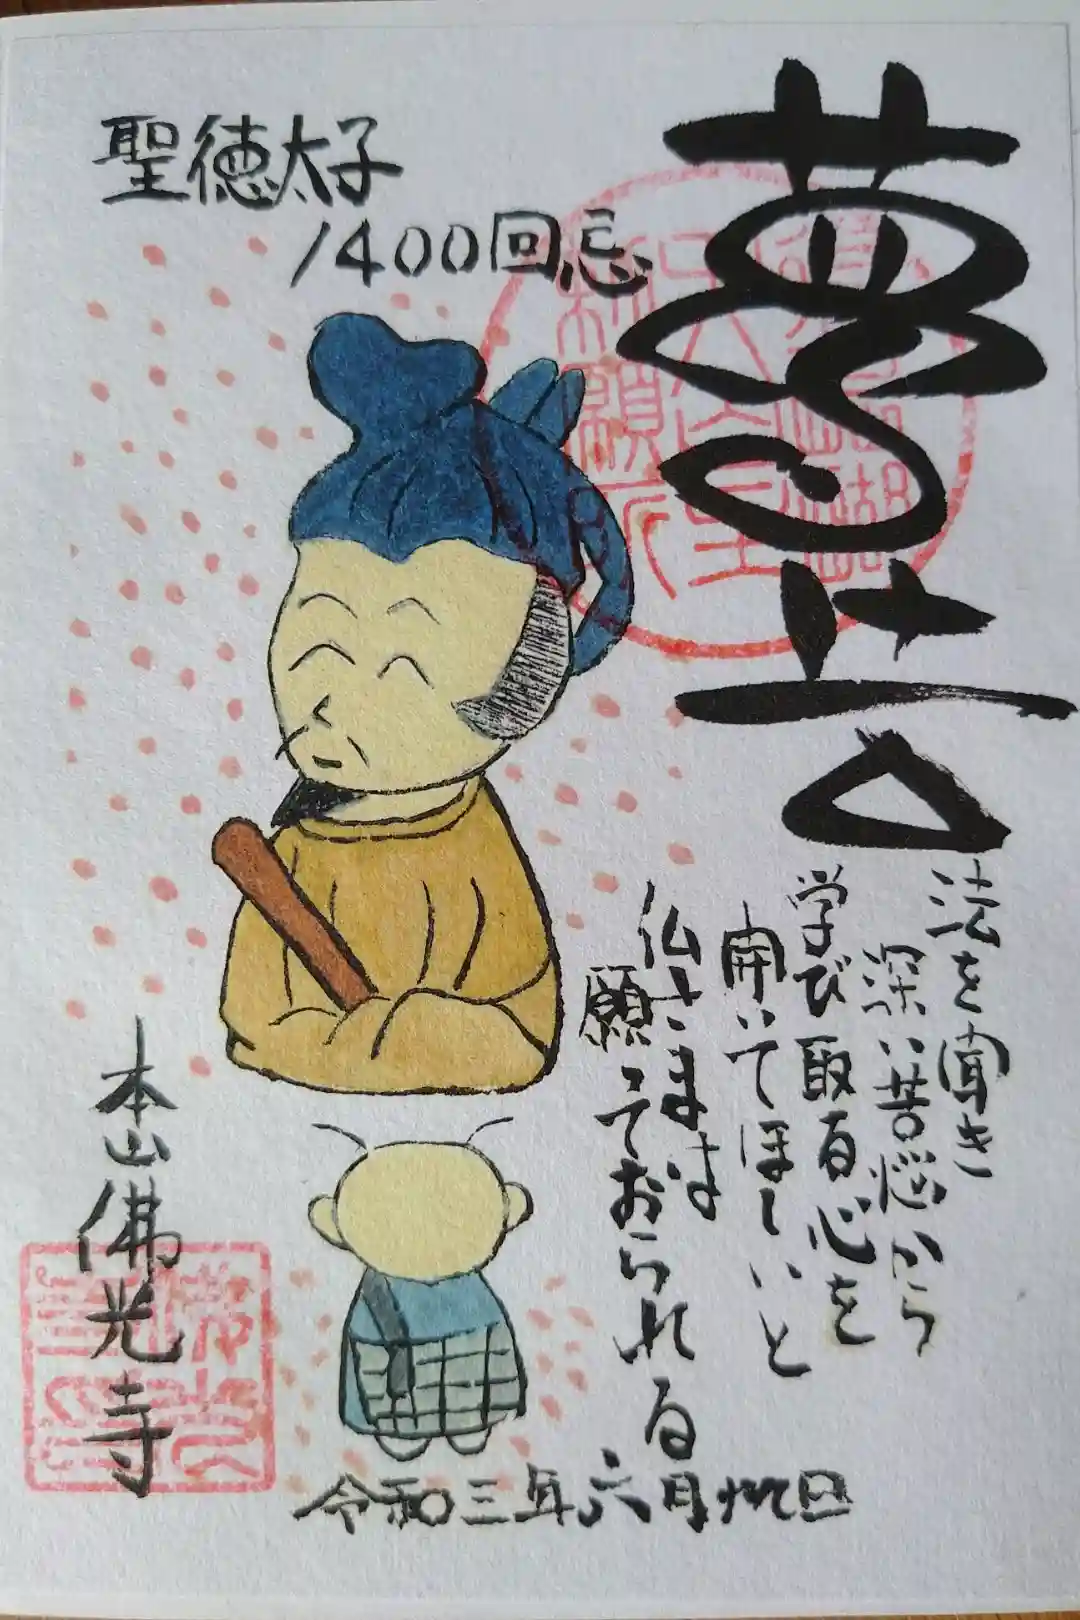 夢告
後醍醐
天皇
勅願所
聖徳太子
1400回忌
法を聞き
深い苦悩から
学び取る心を
開いてほしいと
仏さまは
願っておられる
本山佛光寺
令和三年六月 日